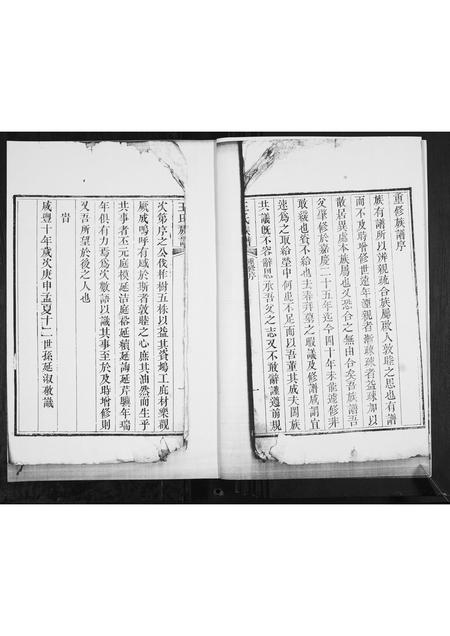 重修族譜序
族有譜所以辨親疏合族屬啟人敦睦之思也有譜
而不及時增修世遠年湮親者漸疏疏者益疏加以
散居異處本族屬也又恐合之無由合矣吾族譜吾
父肇修於嘉慶二十五年迄今四十年未能遽修非
敢緩也貲不給也去春拜墓之暇議及修譜咸謂宜
速為之取給塋中何患不足而以吾董其成夫闔族
共議既不容辭思承吾父之志又不敢辭謹遵前規
王氏族譜
重修序
次第序之公伐柏樹五株以益其貲鳩工庀材樂觀
厥成嗚呼有感於斯者敦睦之心應其油然而生乎
共事者丕元庭模延洁庭裕延績延詢延芹興年瑞
年俱有力焉爲次數語以識其事至於及時增修則
又吾所望於後之人也
旹
咸豐十年歲次庚申孟夏十二世孫延淑敬識
王氏族譜